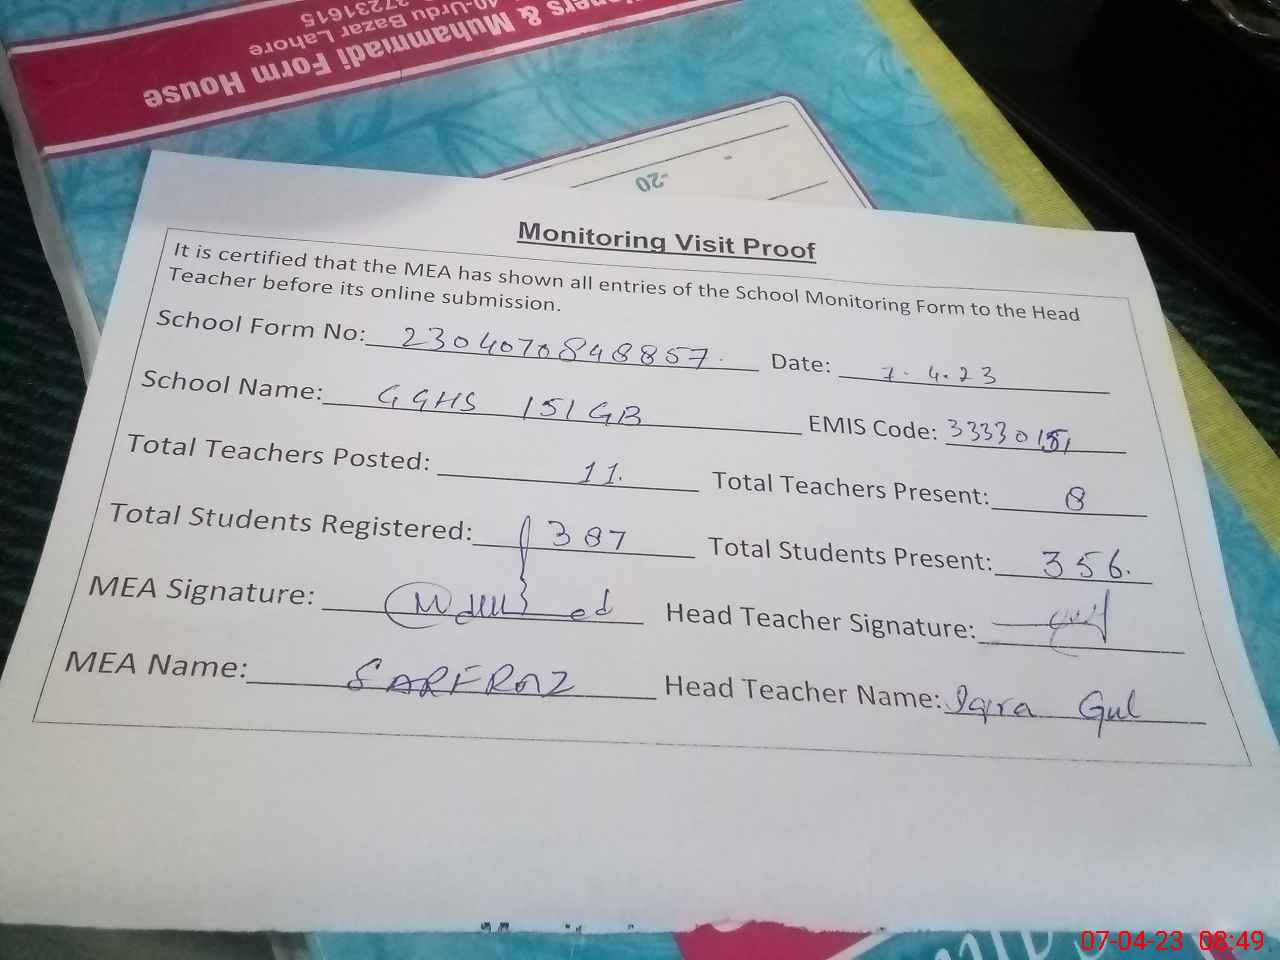 ners & Muhammadi Form House
40-Urdu Bazar Lahore
37231615
-20
Monitoring Visit Proof
It is certified that the MEA has shown all entries of the School Monitoring Form to the Head
Teacher before its online submission.
School Form No: 2304070848857. Date: 7.4.23
School Name: GGHS 151GB EMIS Code: 33330151
Total Teachers Posted: 11. Total Teachers Present: 8
Total Students Registered: 387 Total Students Present: 356.
MEA Signature: Head Teacher Signature:
MEA Name: SARFRAZ Head Teacher Name: Iqra Gul
07-04-23 08:49